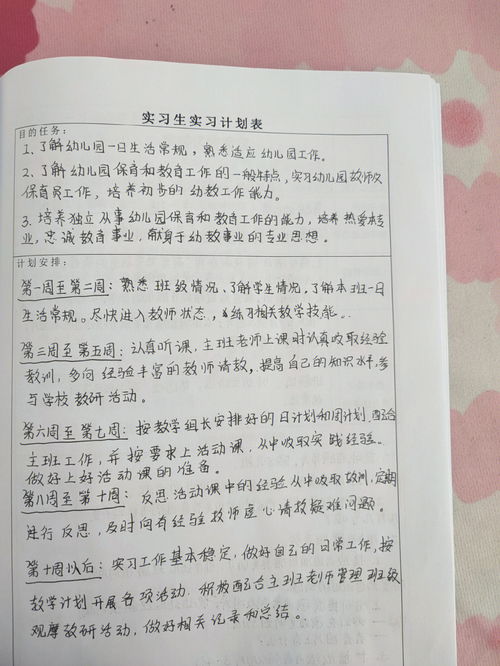 实习生实习计划表
目的任务：
1、了解幼儿园一日生活常规，熟悉适应幼儿园工作。
2、了解幼儿园保育和教育工作的一般特点，实习幼儿园教师及
保育员工作，培养初步的幼教工作能力。
3、培养独立从事幼儿园保育和教育工作的能力，培养热爱本专
业，忠诚教育事业，献身于幼教事业的专业思想。
计划安排：
第一周至第二周：熟悉班级情况、了解学生情况，了解本班一日
生活常规。尽快进入教师状态，练习相关教学技能。
第三周至第五周：认真听课，主班老师上课时认真吸取经验
教训，多向经验丰富的教师请教，提高自己的知识水平，参
与学校教研活动。
第六周至第七周：按教学组长安排好的日计划和周计划配合
主班工作，并按要求上活动课，从中吸取实践经验。
做好上好活动课的准备。
第八周至第十周：反思活动课中的经验从中吸取教训，定期
进行反思，及时向有经验教师虚心请教疑难问题。
第十周以后：实习工作基本稳定，做好自己的日常工作，按
教学计划开展各项活动，积极配合主班老师管理班级
观摩教研活动，做好相关记录和总结。